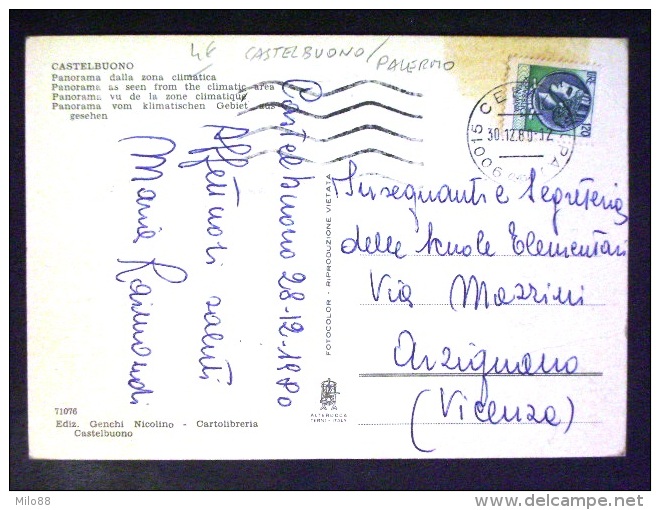 4€ CASTELBUONO/PALERMO
CASTELBUONO
Panorama dalla zona climatica
Panorama as seen from the climatic area
Panorama vu de la zone climatique
Panorama vom klimatischen Gebiet aus
gesehen
Castelbuono 28-12-1980
Affettuosi saluti
Maria Raimondi
71076
Ediz. Genchi Nicolino - Cartolibreria
Castelbuono
FOTOCOLOR - RIPRODUZIONE VIETATA
ALTEROCCA
TERNI - ITALY
90015 CE
30.12.80-12
PA
Insegnanti e Segreteria
delle Scuole Elementari
Via Mazzini
Arzignano
(Vicenza)
Milo88
delcampe.net